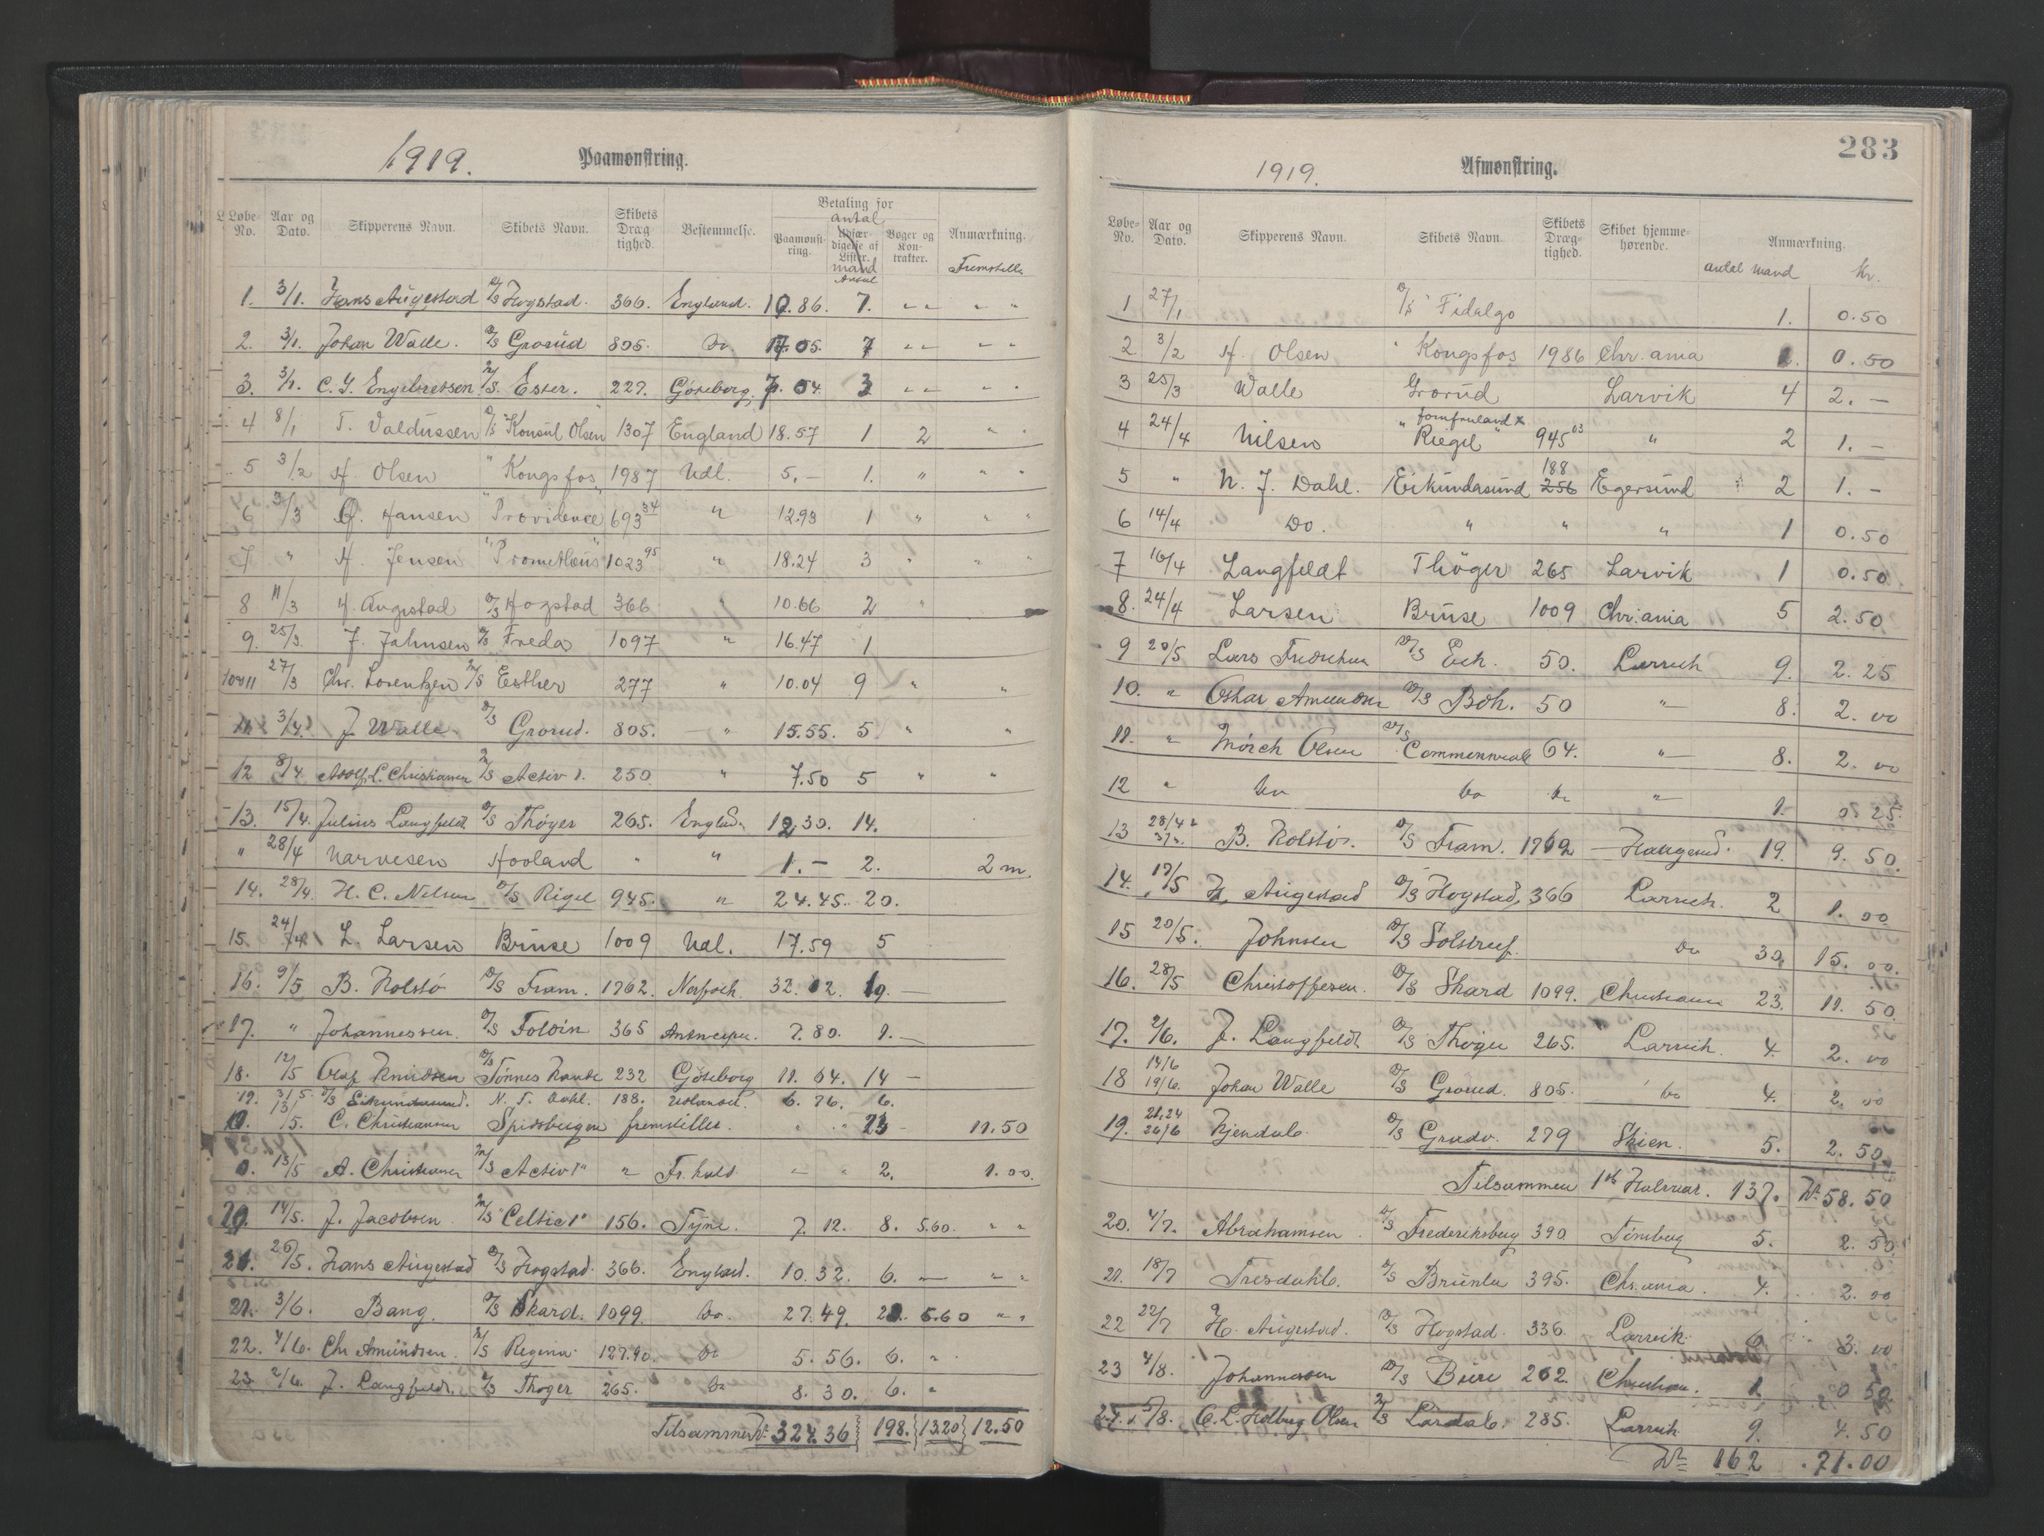 1919.
Paamønstring.
Løbe-No. Aar og Dato. Skipperens Navn. Skibets Navn. Skibets Drægtighed. Bestemmelse. Betaling for Paamønstring. Udfærdigelse af Lister. antal mand Bøger og Kontrakter. Anmærkning.
Fremstille
1. 3/1. Hans Augestad D/S Hogstad. 366. England. 10.86. 7. " "
2. 3/1. Johan Walle. D/S Grorud 805. Do 17.05. 7 " "
3. 3/1. C. G. Engebretsen M/S. Ester. 227. Göteborg. 7.04 3 " "
4 8/1 T. Valdussen D/S "Konsul Olsen" 1307 England 18.57 1 2 " "
5 3/2 H. Olsen " Kongsfos 1987 Udl. 5.- 1. " " "
6 3/3 O. Hansen "Providence 693 34 " 12.93 1 " " "
7 " H. Jensen "Prometheus" 1023 95 " 18.24 3 " " "
8 11/3 H. Augestad D/S Hogstad 366 " 10.66 2 "
9. 25/3 J. Jahnsen D/S Freda 1097 " 16.47 1
10 & 11 27/3 Chr. Lorentzen M/S Esther 277 " 10.04 9 " "
11 3/4. J. Walle. D/S Grorud. 805. " 15.55. 5 " "
12 8/4 Adolf L. Christiansen M/S Activ 1. 250 " 7.50 5 " "
13. 15/4. Julius Langfeldt D/S Thøger 265. England 12.30. 14.
" 28/4 Narvesen Hovland " " 1.- 2. 2 m.
14. 28/4. H. C. Nelsen D/S Rigel 945. " 24.45. 20.
15. 24/4 L. Larsen Bruse 1009 Udl. 17.59 5
16. 9/5 B. Kolstø D/S Fram. 1762. Norfolk. 32.02. 19. -
17. " Johannessen. D/S Foldin 365 Antwerpen. 7.80. 1. -
18. 12/5 Olaf Knudsen D/S Tønnes 232 Göteborg 11.64. 14 -
19. 31/5. D/S Eikundasund. N. J. Dahl. 188. Udlandet. 6.76. 6.
0. 13/5. C. Christiansen Spidsbergen fremstilles. " " 23 - 11.50
0. 13/5 A. Christiansen M/S Activ 1" " Fr. hald - " 2. 1.00.
20 14/5. J. Jacobsen. M/S "Celtic 1" 156. Tyne. 7.12. 8. 5.60. " "
21. 26/5. Hans Augestad D/S Hogstad. 366. England. 10.32. 6. - " "
21. 3/6. Bang. D/S Skard. 1099. Do. 27.49. 5.60 " "
22. 4/6. Chr Amundsen. M/S Regina. 127.90. Do 5.56. 6. "
23. 2/6. J. Langfeldt. D/S Thøger 265. Do 8.30. 6. "
Tilsammen Kr. 327.36 198. 13.20 12.50
283
1919.
Afmønstring.
Løbe-No. Aar og Dato. Skipperens Navn. Skibets Navn. Skibets Drægtighed. Skibet hjemmehørende. Anmærkning.
antal mand Kr.
1 27/1 D/S "Fidalgo 1. 0.50
2. 3/2 H. Olsen " Kongsfos 1986 Chr.ania 1. 0.50
3 25/3 Walle Grorud Larvik 4 2.-
4 24/4 Nilsen "Riegel" 945 63 " 2 1.-
5 " N. J. Dahl. Eikundasund 188 256 Egersund 2 1.-
6 14/4 Do. " " " 1 0.50
7 16/4 Langfeldt Thöger 265 Larvik 1 0.50.
8. 24/4 Larsen Bruse 1009 Chr.ania 5 2.50
9 20/5 Lars Fredriksen D/S Eik. 50. Larvik 9. 2.25
10. " Oskar Amundsen D/S Boh. 50 " 8. 2.00
11. " Mørch Olsen D/S Commonweal 64. " 8. 2.00
12 " Do Do Do " 1. 0.25.
13 28/4 B. Kolstø. D/S Fram. 1762 Haugesund. 19. 9.50.
14. 17/5 H. Augestad D/S Hogstad. 366 Larvik. 2 1.00
15 20/5. Johnsen D/S Solstreif. Do 30. 15.00.
16. 28/5 Christoffersen. D/S Skard 1099. Christiania 23. 11.50.
17. 2/6. J. Langfeldt D/S Thøger 265. Larvik. 4. 2.00
18 14/6 19/6. Johan Walle D/S Grorud. 805. Do 4. 2.00
19. 21.24 26/6 Kjendal. D/S Gradv. 279 Skien. 5. 2.50.
Tilsammen 1ste Halvaar. 137. Kr. 58.50
20. 4/7. Abrahamsen. D/S Frederiksberg 390 Tönsberg 5. 2.50
21. 18/7 Tresdahl. D/S Brunla 395. Chr.ania. 4. 2.00
22 22/7 H. Augestad. D/S Hogstad. 336. Larvik. 6. 3.00
23 4/8. Johannessen D/S Biri 262. Christiania. 1. 0.50
24. 5/8. C. L. Holberg Olsen M/S Lardal. 285. Larvik 9. 4.50
Kr. 162 71.00